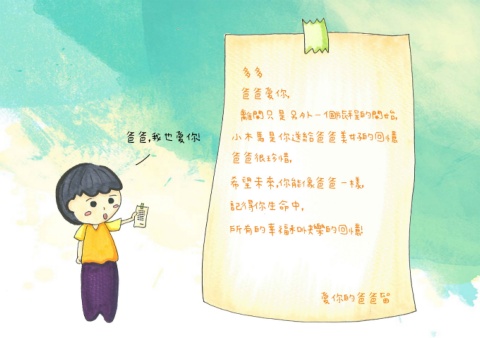 爸爸,我也愛你!
多多
爸爸愛你,
離開只是另外一個旅程的開始,
小木馬是你送給爸爸美好的回憶
爸爸很珍惜,
希望未來,你能像爸爸一樣,
記得你生命中,
所有的幸福和快樂的回憶!
愛你的爸爸留